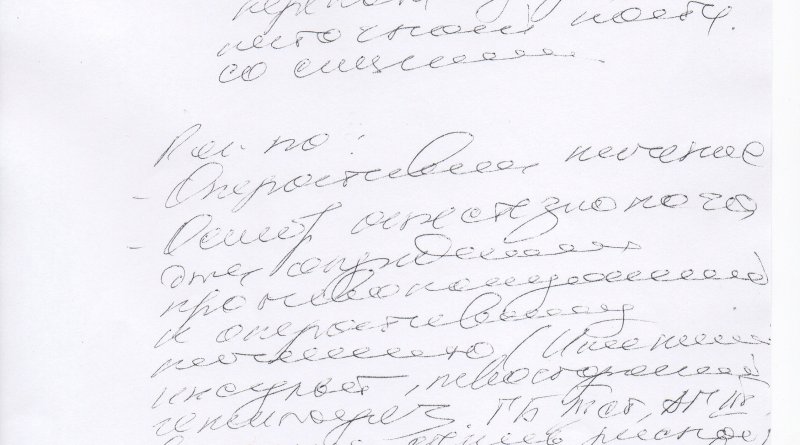 перелом
пяточной кости.
со смещением.
Рек-но:
- Оперативное лечение
- Осмотр анестезиолога
для определения
противопоказаний
к оперативному
лечению (Ишемич
инсульт, левосторонний
гемипарез. ГБ IIIст, АГ III